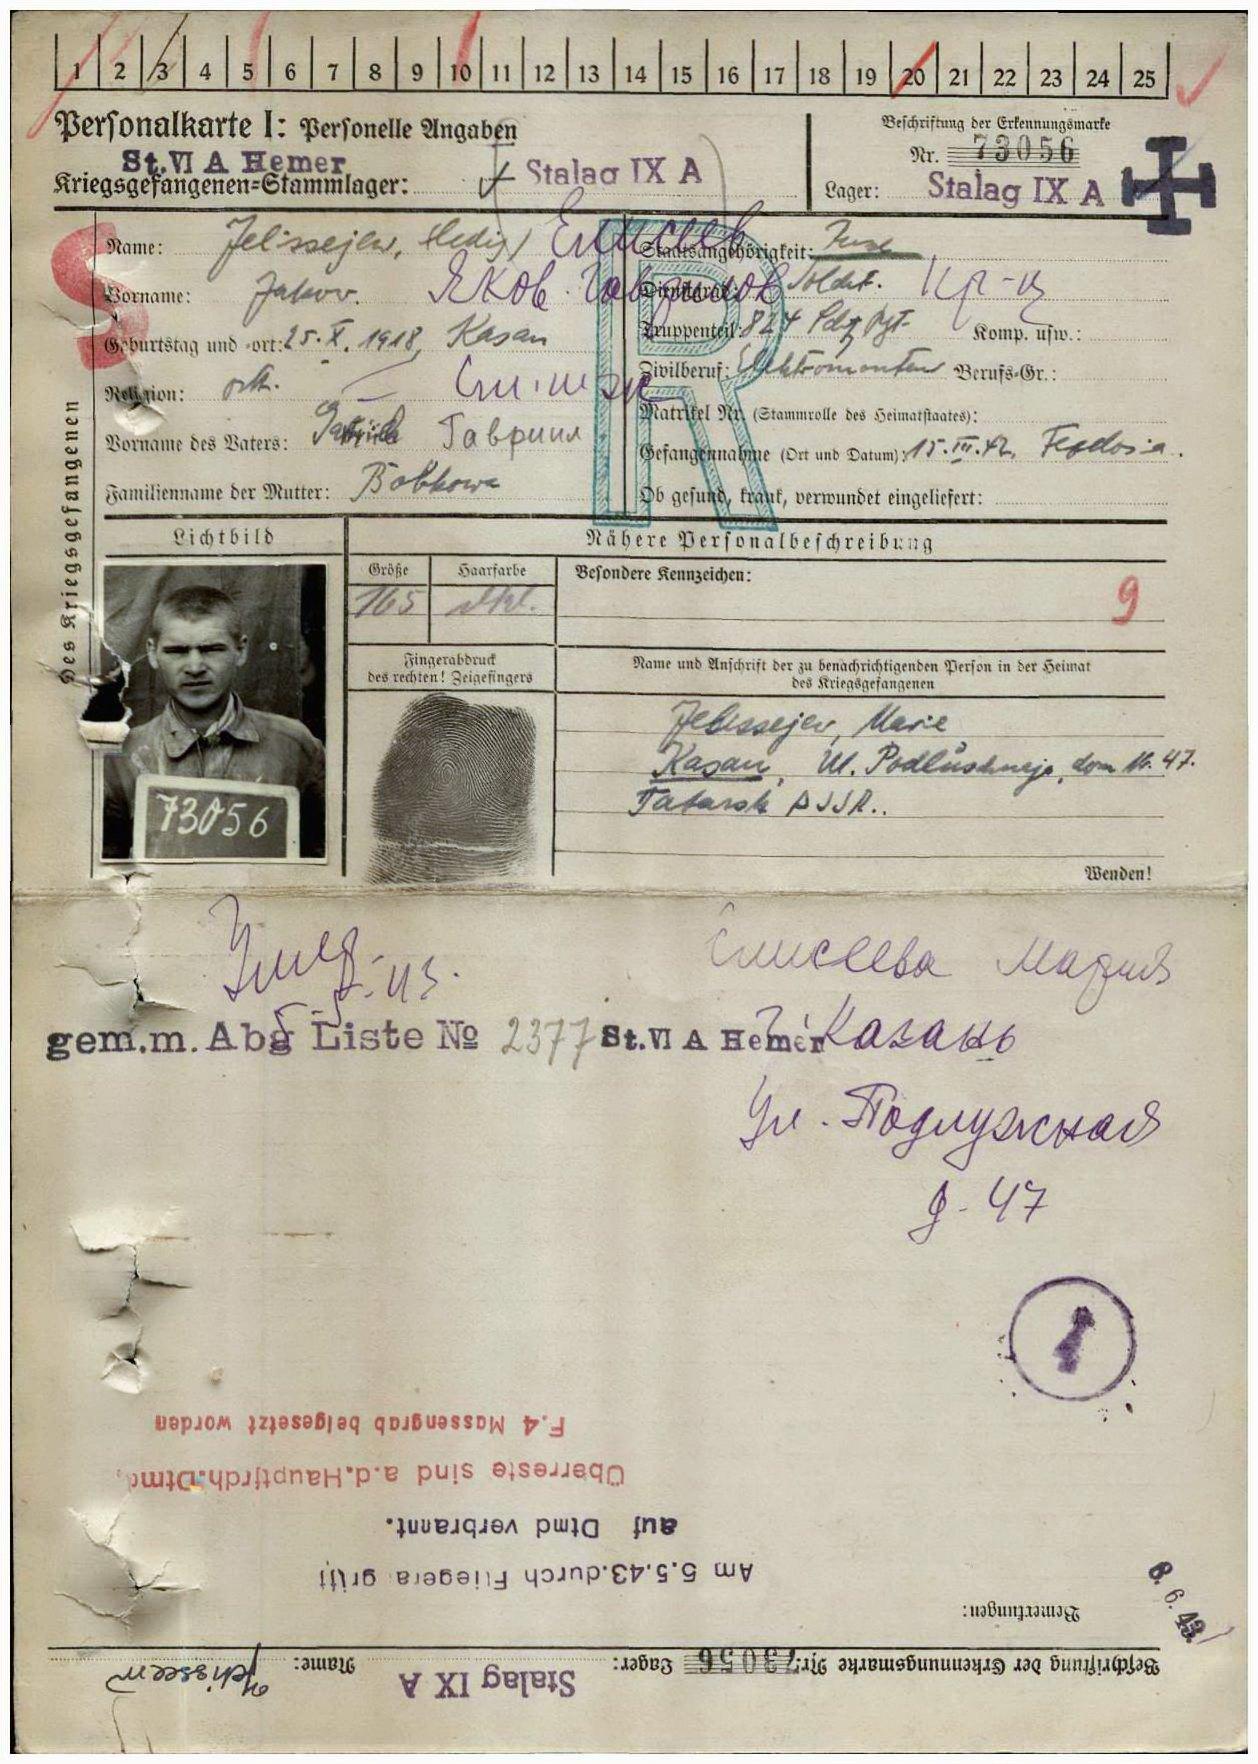 1 2 3 4 5 6 7 8 9 10 11 12 13 14 15 16 17 18 19 20 21 22 23 24 25
Personalkarte I: Personelle Angaben
St. VI A Hemer
Kriegsgefangenen=Stammlager: Stalag IX A
Beschriftung der Erkennungsmarke
Nr. 73056
Lager: Stalag IX A
Des Kriegsgefangenen
Name: Jelissejew, (ledig) Елисеев
Vorname: Jakow. Яков Гаврилов
Geburtstag und -ort: 25.X.1918, Kasan
Religion: orth.
Vorname des Vaters: Гавриил
Familienname der Mutter: Bobkowa
Staatsangehörigkeit:
Dienstgrad: Soldat. Кр-ц
Truppenteil: 824 Komp. usw.:
Zivilberuf: Elektromonteur Berufs-Gr.:
Matrikel Nr. (Stammrolle des Heimatstaates):
Gefangennahme (Ort und Datum): 15.III.42, Feodosia.
Ob gesund, krank, verwundet eingeliefert:
R
Lichtbild
Nähere Personalbeschreibung
Größe Haarfarbe Besondere Kennzeichen:
165 dkl. 9
Fingerabdruck
des rechten! Zeigefingers
Name und Anschrift der zu benachrichtigenden Person in der Heimat
des Kriegsgefangenen
Jelissejew, Marie
Kasan, Ul. Podlushnaja, dom N. 47.
Tatarsk ASSR.
73056
Wenden!
Умер
5.5.43.
Елисеева Мария
gem.m. Abg Liste № 2377 St. VI A Hemer
г. Казань
Ул. Подлужная
д. 47
F.4 Massengrab beigesetzt worden
Überreste sind a.d.Hauptfrdh.Dtmd.
auf Dtmd verbrannt.
Am 5.5.43.durch Fliegera griff
Bemerkungen:
8. 6. 43
Beschriftung der Erkennungsmarke Nr.: 73056 Lager: Stalag IX A Name: Jelisseew